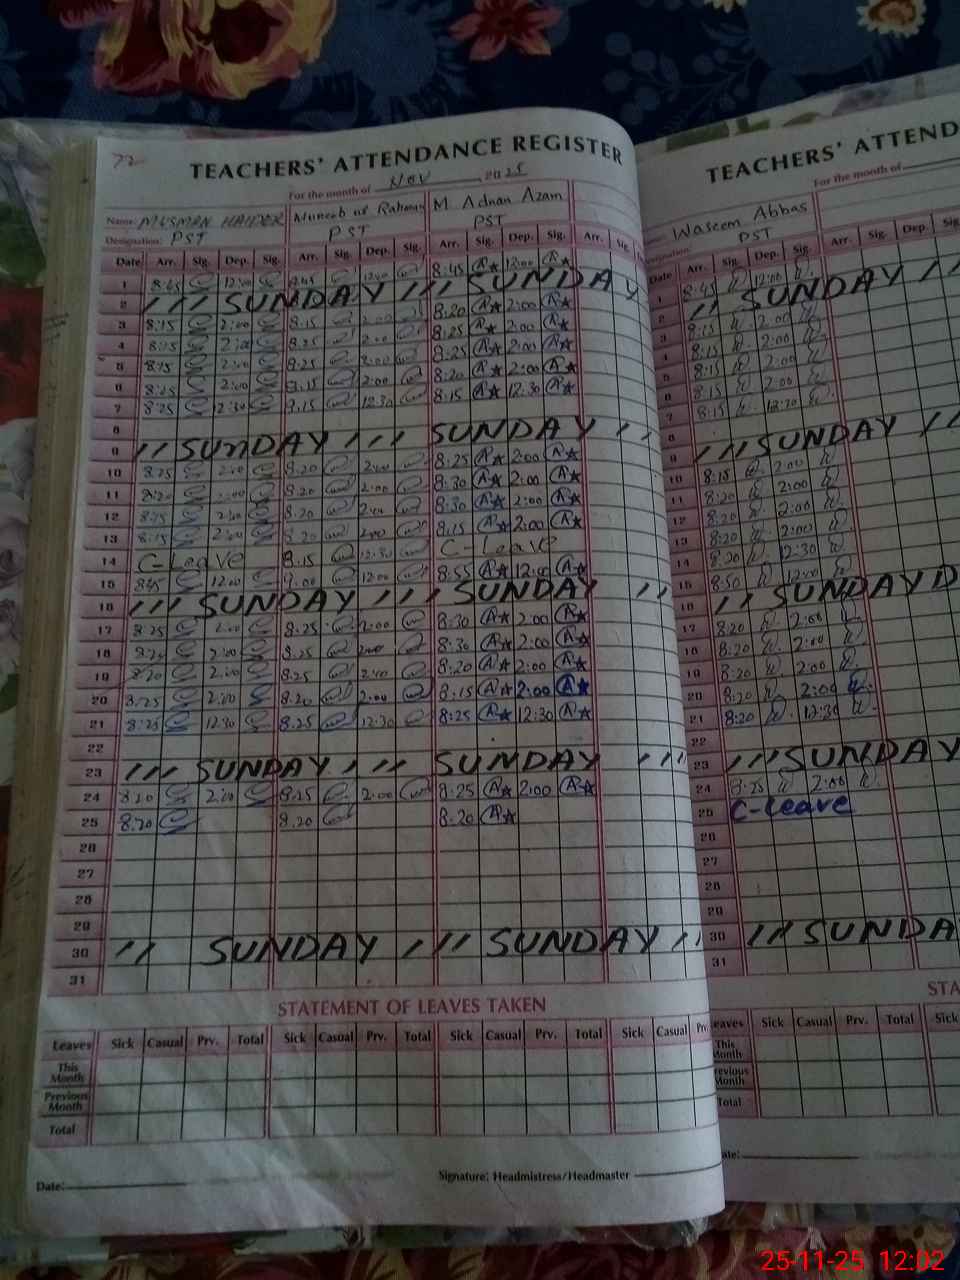 72
TEACHERS' ATTENDANCE REGISTER
For the month of Nov 2025
Name: MUSMAN HAIDER Muneeb ur Rahman M Adnan Azam
Designation: PST PST PST
Date Arr. Sig. Dep. Sig. Arr. Sig. Dep. Sig. Arr. Sig. Dep. Sig. Arr. Sig.
1 8:45 12:00 8:45 12:00 8:45 A 12:00 A
2 SUNDAY SUNDAY
3 8:15 2:00 8.15 2.00 8:20 A 2:00 A
4 8:15 2:00 8.25 2.00 8:25 A 2:00 A
5 8:15 2:00 8.25 2:00 8:25 A 2:00 A
6 8:25 2:00 8.15 2:00 8:20 A 2:00 A
7 8:25 12:30 8.15 12.30 8:15 A 12:30 A
8
9 SUNDAY SUNDAY
10 8:25 2:00 8.20 2:00 8:25 A 2:00 A
11 8:20 2:00 8.20 2:00 8:30 A 2:00 A
12 8:15 2:00 8.20 2:00 8:30 A 2:00 A
13 8:15 2:00 8.20 2:00 8:15 A 2:00 A
14 C-Leave 8.15 12:30 C-Leave
15 8:45 12:00 9.00 12:00 8:55 A 12:00 A
16 SUNDAY SUNDAY
17 8:25 2:00 8.25 2:00 8:30 A 2:00 A
18 8:25 2:00 8.25 2:00 8:30 A 2:00 A
19 8:20 2:00 8.25 2:00 8:20 A 2:00 A
20 8:25 2:00 8.20 2:00 8:15 A 2:00 A
21 8:25 12:30 8.25 12:30 8:25 A 12:30 A
22
23 SUNDAY SUNDAY
24 8:20 2:00 8.25 2:00 8:25 A 2:00 A
25 8:20 8.20 8:20 A
26
27
28
29
30 SUNDAY SUNDAY
31
STATEMENT OF LEAVES TAKEN
Leaves Sick Casual Prv. Total Sick Casual Prv. Total Sick Casual Prv. Total Sick Casual Prv.
This Month
Previous Month
Total
Date: Signature: Headmistress/Headmaster
TEACHERS' ATTEND
For the month of
Waseem Abbas
Designation: PST
Date Arr. Sig. Dep. Sig. Arr. Sig. Dep. Sig.
1 8:45 12:00
2 SUNDAY
3 8:15 2:00
4 8:15 2:00
5 8:15 2:00
6 8:15 2:00
7 8:15 12:30
8
9 SUNDAY
10 8:15 2:00
11 8:20 2:00
12 8:20 2:00
13 8:20 2:00
14 8:20 12:30
15 8:50 12:00
16 SUNDAY
17 8:20 2:00
18 8:20 2:00
19 8:20 2:00
20 8:20 2:00
21 8:20 12:30
22
23 SUNDAY
24 8:25 2:00
25 C-Leave
26
27
28
29
30 SUNDA
31
STA
eaves Sick Casual Prv. Total Sick
This Month
revious Month
Total
ate:
25-11-25 12:02